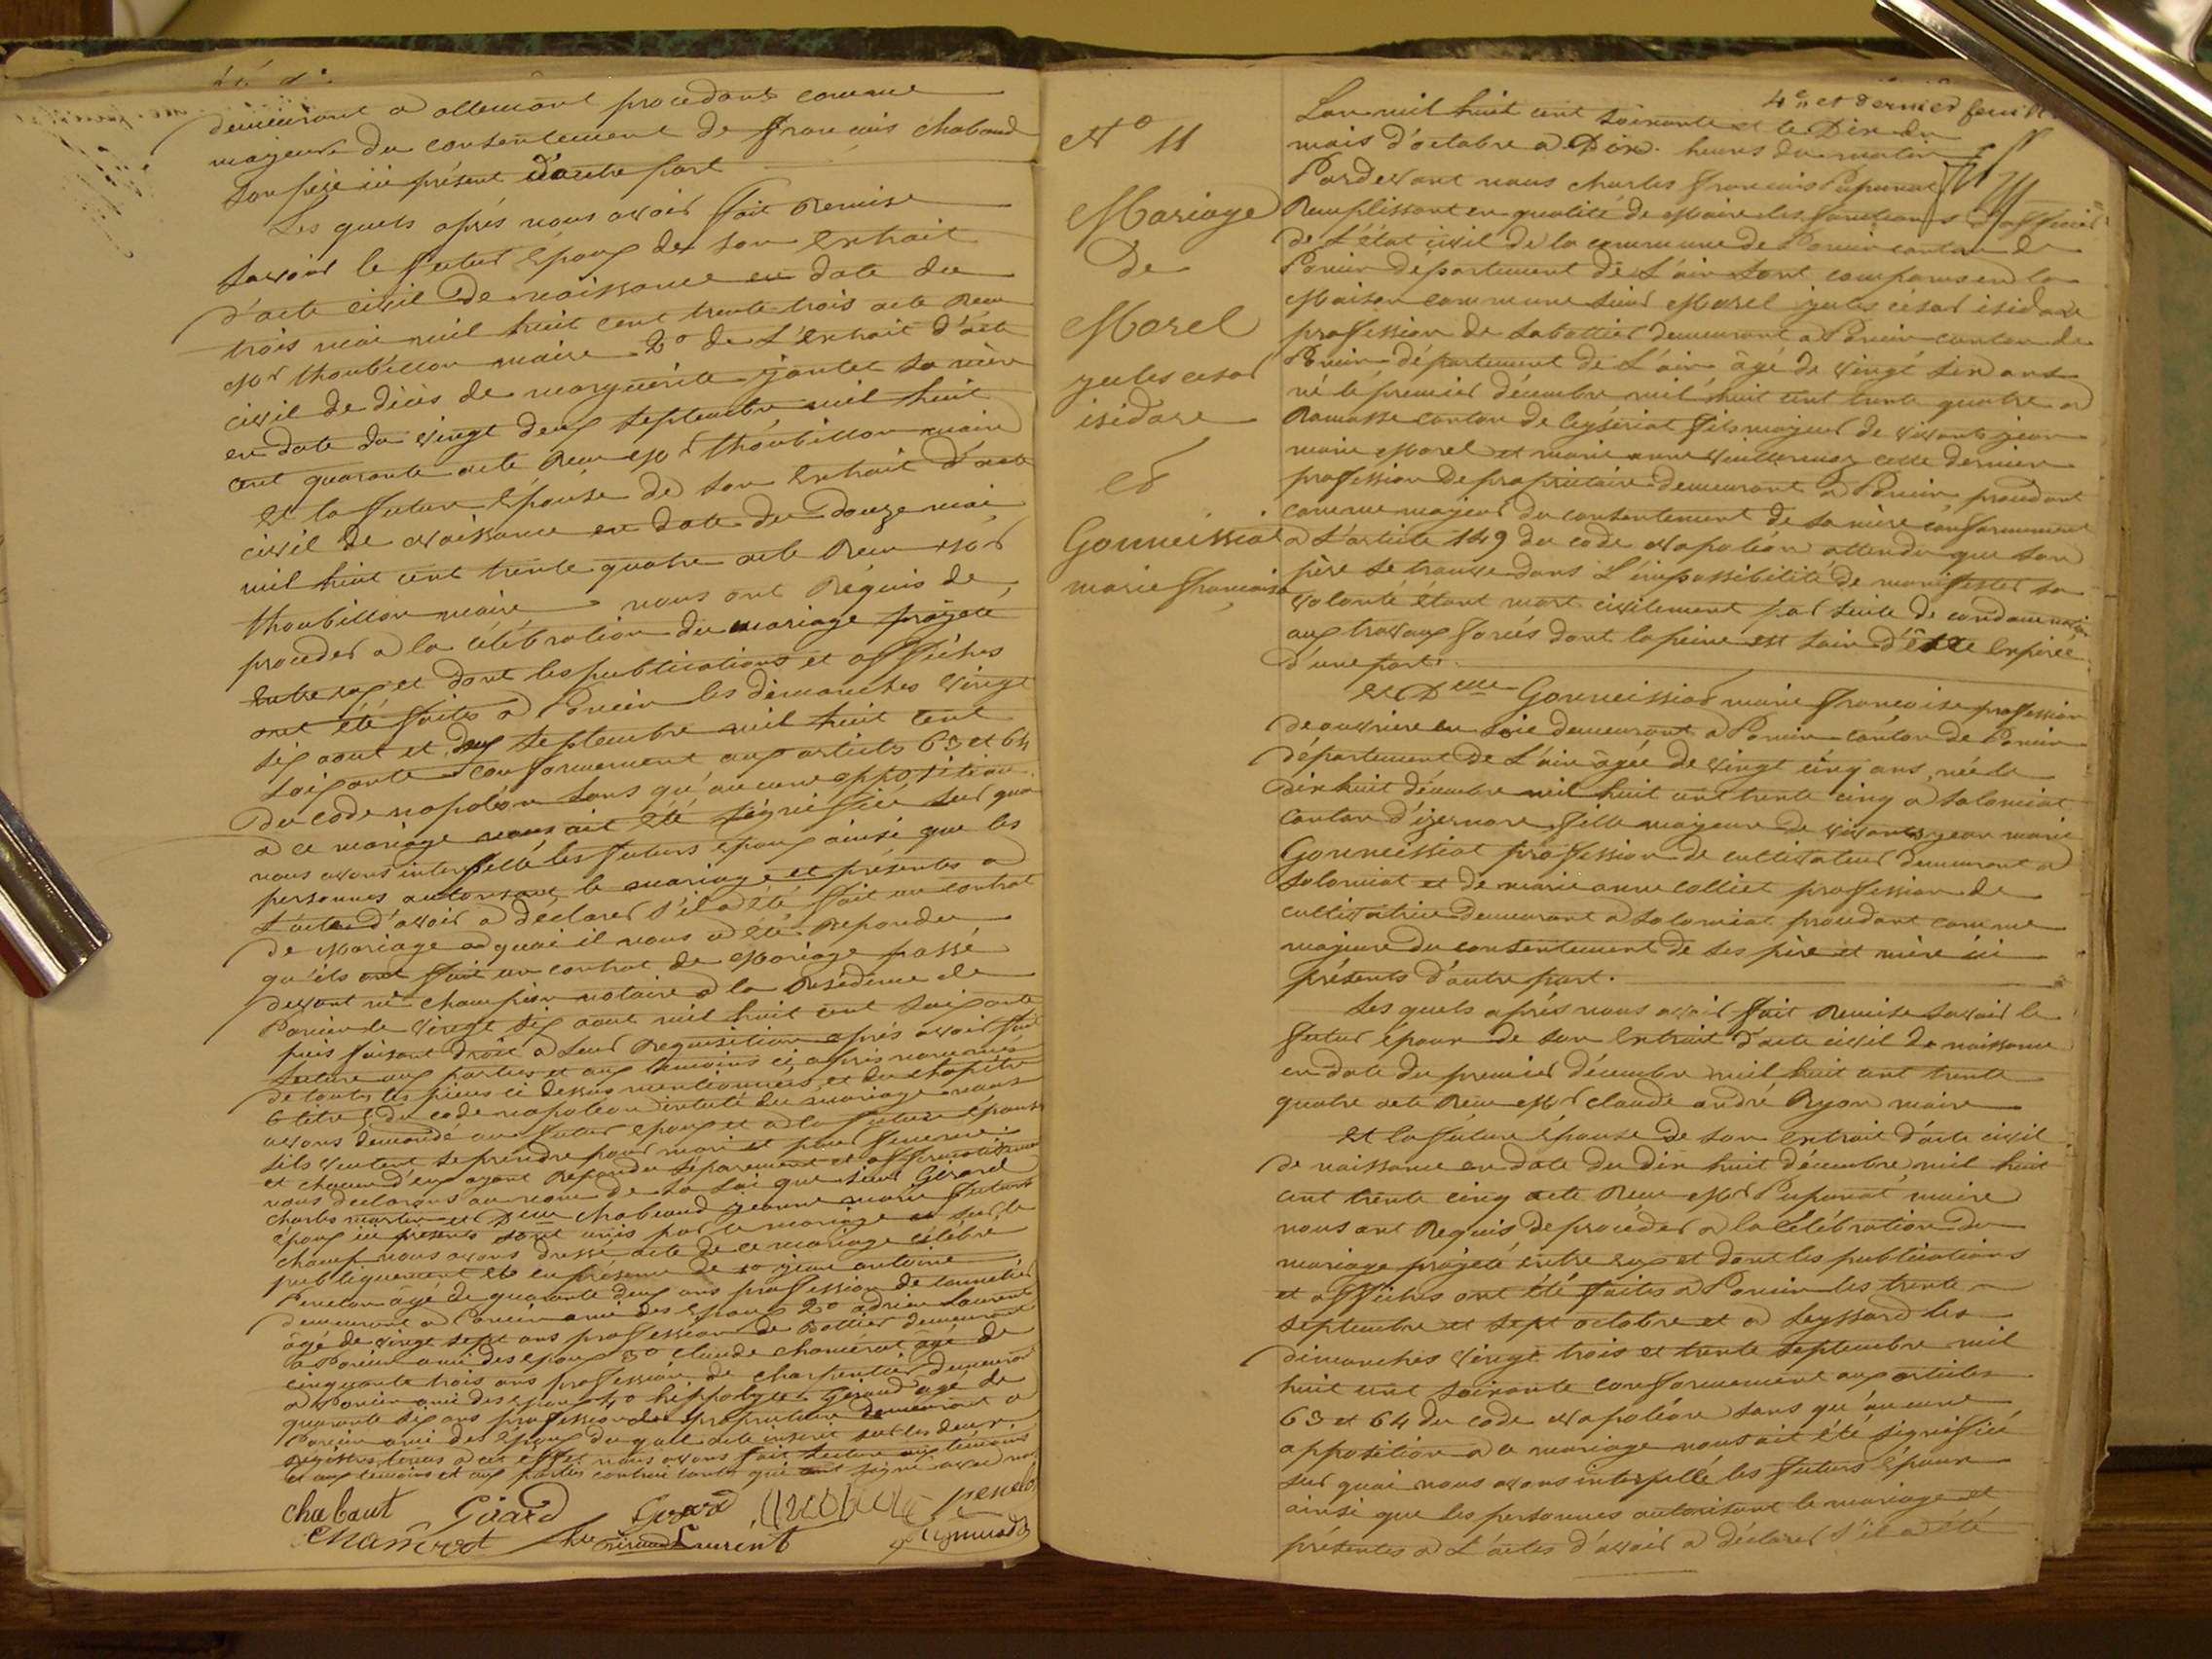 demeurant a allement procedant comme
majeure du consentement de francois chabaud
son père ici présent d'autre part
Les quels après nous avoir fait Remise
savoir le futur époux de son Extrait
d'acte civil de naissance en date du
trois mai mil huit cent trente trois acte Reçu
Mr thoubillon maire 2º de L'Extrait d'acte
civil de décès de marguerite jantet sa mère
en date du vingt deux septembre mil huit
cent quarante acte Reçu Mr thoubillon maire
et la future Epouse de son Extrait d'acte
civil de naissance en date du douze mai
mil huit cent trente quatre acte Reçu Mr
thoubillon maire nous ont Réquis de
proceder a la célébration du mariage projeté
Entre eux et dont les publications et affiches
ont été faites a Poncin les dimanches vingt
six aout et deux septembre mil huit cent
soixante conformement aux articles 63 et 64
du code napoléon sans qu'aucune opposition
a ce mariage nous ait été signifiée sur quoi
nous avons interpellé les futurs époux ainsi que les
personnes autorisant le mariage et présentes a
L'acte d'avoir a déclarer s'il a été fait un contrat
de Mariage a quoi il nous a été Repondu
qu'ils ont fait un contrat de Mariage passé
devant me champion notaire a la Résidence de
Poncin le vingt six aout mil huit cent soixante
puis faisant droit a leur Requisition après avoir fait
lecture aux parties et aux temoins ci après nommés
de toutes les pieces ci dessus mentionnées et du chapitre
6 titre 5 du code napoleon intitulé du mariage nous
avons demandé au futur epoux et a la future épouse
sils veulent se prendre pour mari et pour femme
et chacun d'eux ayant Repondu séparement et affirmativement
nous declarons au nom de la Loi que sieur Girard
charles martin et Delle chabaud jeanne marie futurs
epoux ici présents sont unis par le mariage et sur le
champ nous avons dressé acte de ce mariage célébré
publiquement et en présence de 1º jean antoine
Peneton âgé de quarante deux ans profession de tonnelier
demeurant a Poncin ami des epoux 2º adrien Laurent
âgé de vingt sept ans profession de Bottier demeurant
a Poncin ami des epoux 3º claude chamérat âgé de
cinquante trois ans profession de charpentier demeurant
a Poncin ami des epoux 4º hippolyte Giraud âgé de
quarante six ans profession de propriétaire demeurant a
Poncin ami des époux du quel acte inscrit sur les deux
registres tenus a cet effet nous avons fait lecture aux témoins
et aux temoins et aux parties contractantes qui ont signé avec nous
chabaut Girard Girard
chamérat Laurent
4e et dernier feuillet
Nº 11
Mariage
De
Morel
jules cesar
isidore
et
Gonneissiat
marie françoise
Lan mil huit cent soixante et le Dix du
mois d'octobre a Dix heures du matin
Pardevant nous charles francois Pupunat
Remplissant en qualité de Maire les fonctions d'officier
de L'état civil de la commune de Poncin canton de
Poncin département de L'ain sont comparus en la
Maison commune sieur Morel jules césar isidore
profession de sabottier demeurant a Poncin canton de
Poncin département de L'ain âgé de vingt six ans
né le premier décembre mil huit cent trente quatre a
Ramasse canton de ceyzériat fils majeur de vivants jean
marie Morel et marie anne vuillermoz cette derniere
profession de propriétaire demeurant a Poncin procédant
comme majeur du consentement de sa mère conformement
a L'article 149 du code napoléon attendu que son
père se trouve dans L'impossibilité de manifester sa
volonté étant mort civilement par suite de condamnation
aux travaux forcés dont la peine est loin d'être Expirée
d'une part.
et Delle Gonneissiat marie francoise profession
de ouvriere en soie demeurant a Poncin canton de Poncin
département de L'ain âgée de vingt cinq ans, née le
dix huit décembre mil huit cent trente cinq a solomiat
canton d'izernore, fille majeure de vivants jean marie
Gonneissiat profession de cultivateur demeurant a
solomiat et de marie anne collet profession de
cultivatrice demeurant a solomiat procedant comme
majeure du consentement de ses père et mère ici
présents d'autre part.
Les quels après nous avoir fait Remise savoir le
futur époux de son Extrait d'acte civil de naissance
en date du premier décembre mil huit cent trente
quatre acte Reçu Mr claude andré Ryon maire
et la future épouse de son Extrait d'acte civil
de naissance en date du dix huit décembre mil huit
cent trente cinq acte Reçu Mr Pupunat maire
nous ont Requis de procéder a la célébration du
mariage projeté entre eux et dont les publications
et affiches ont été faites a Poncin les trente
septembre et sept octobre et a Leyssard les
dimanches vingt trois et trente septembre mil
huit cent soixante conformement aux articles
63 et 64 du code napoléon sans qu'aucune
opposition a ce mariage nous ait été signifiée
sur quoi nous avons interpellé les futurs époux
ainsi que les personnes autorisant le mariage et
présentes a L'actes d'avoir a déclarer s'il a été